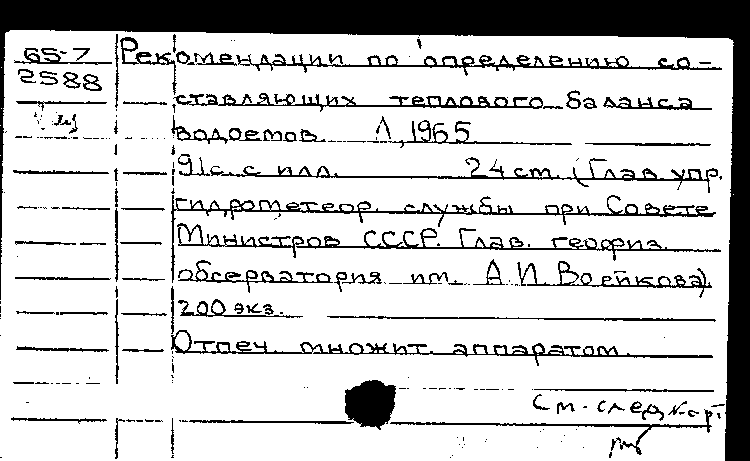 65-7
2588
Рекомендации по определению со-
ставляющих теплового баланса
водоемов. Л, 1965.
91с. с илл. 24 см. (Глав. упр.
гидрометеор. службы при Совете
Министров СССР. Глав. геофиз.
обсерватория им. А.И. Воейкова).
200 экз.
Отпеч. множит. аппаратом.
См. след.